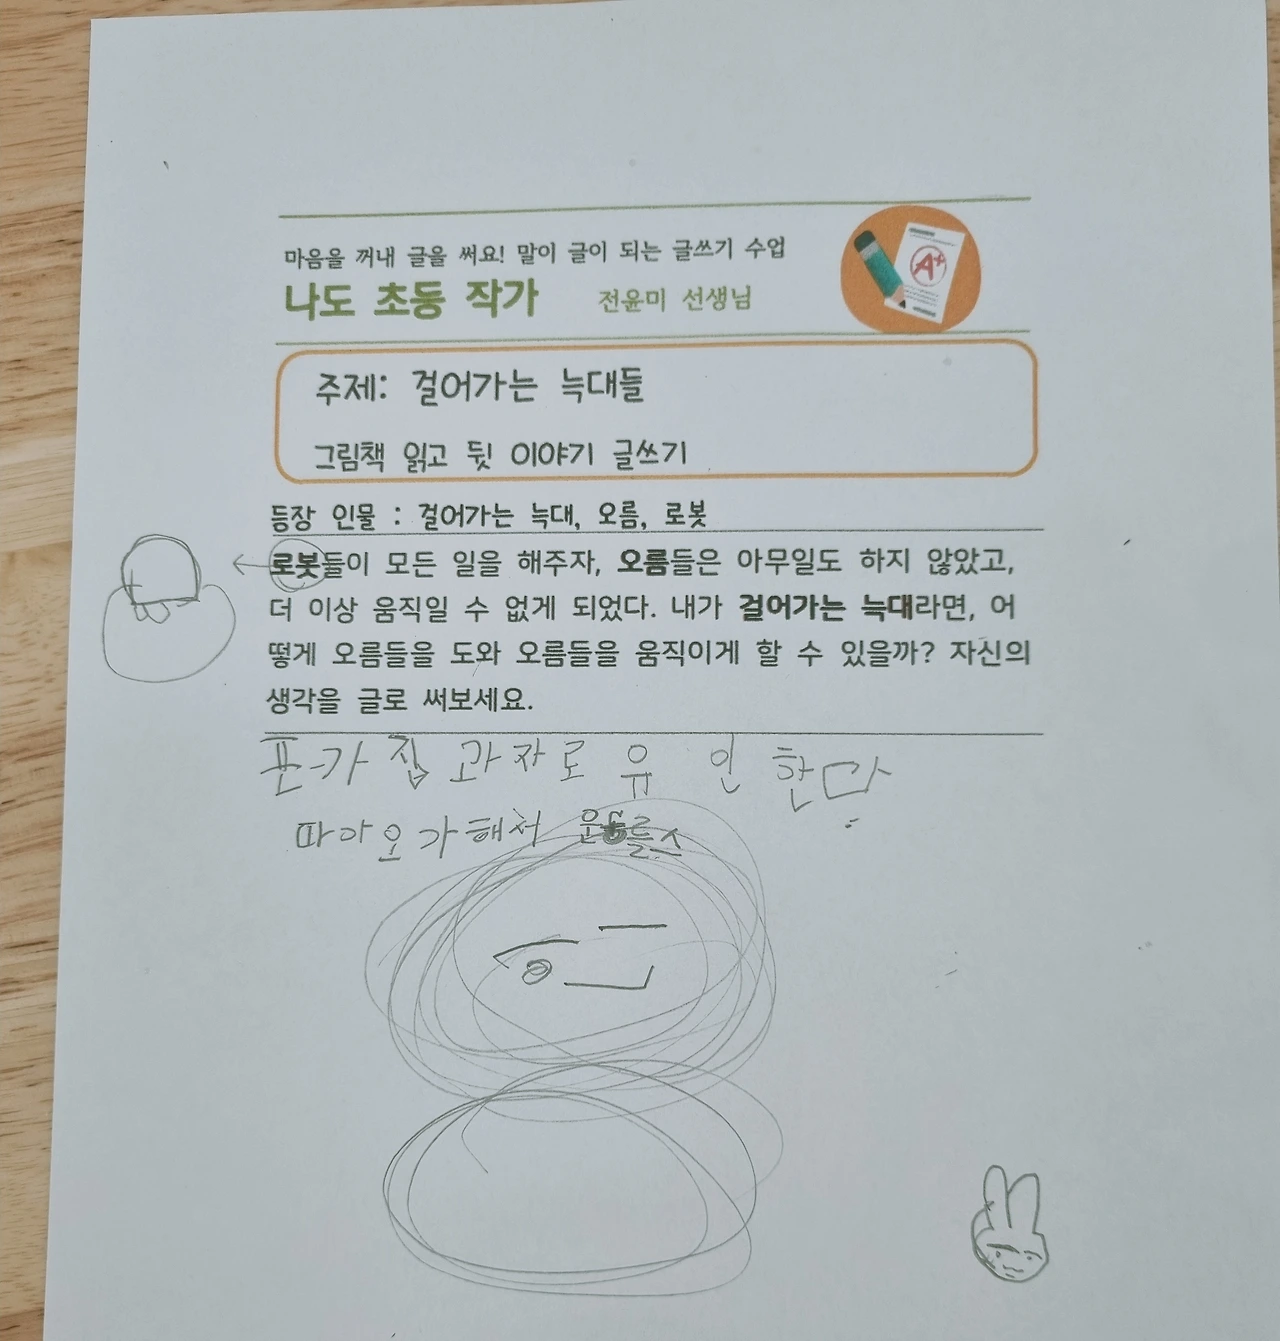 마음을 꺼내 글을 써요! 말이 글이 되는 글쓰기 수업
나도 초등 작가 전윤미 선생님
A+
주제: 걸어가는 늑대들
그림책 읽고 뒷 이야기 글쓰기
등장 인물 : 걸어가는 늑대, 오름, 로봇
로봇들이 모든 일을 해주자, 오름들은 아무일도 하지 않았고,
더 이상 움직일 수 없게 되었다. 내가 걸어가는 늑대라면, 어
떻게 오름들을 도와 오름들을 움직이게 할 수 있을까? 자신의
생각을 글로 써보세요.
집 과자로 유인한다